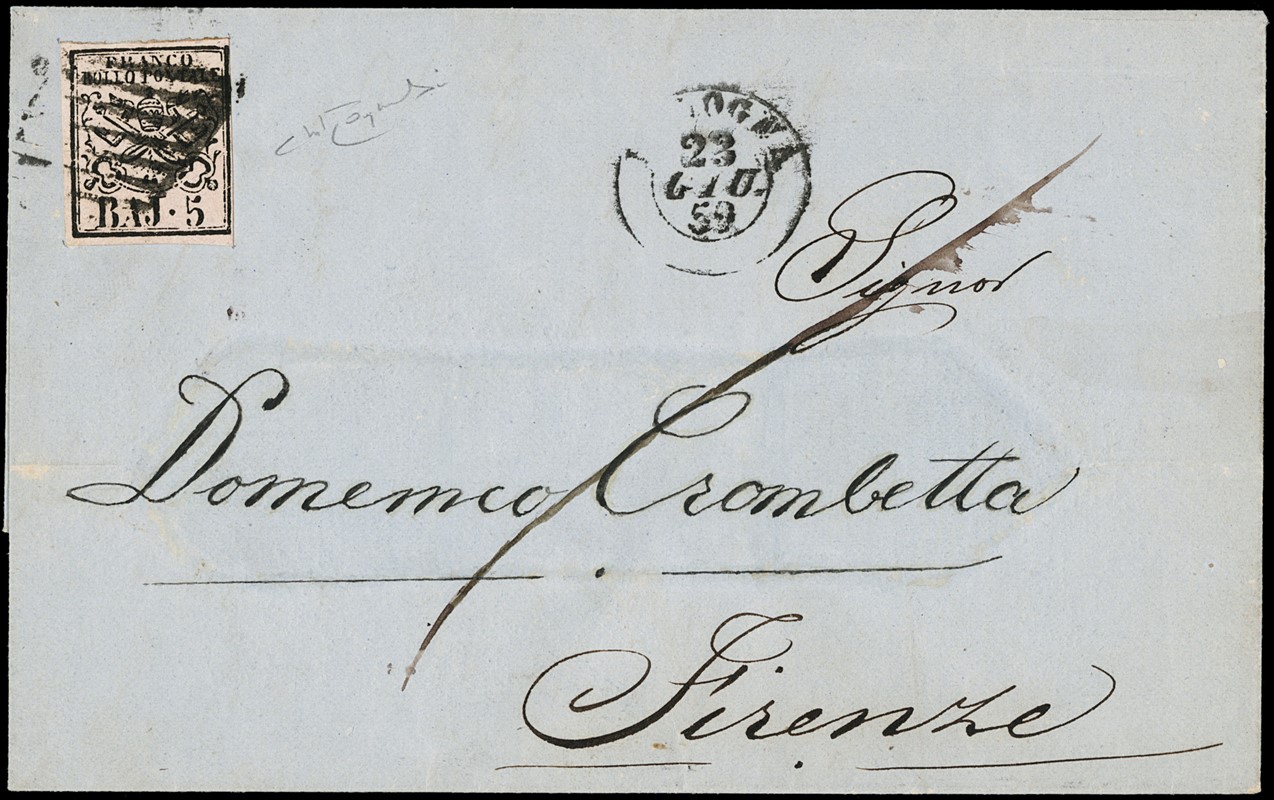 FRANCO
BOLLO POSTALE
BAJ. 5
OGNA
23
GIU.
59
Signor
Domenico Trombetta
Firenze